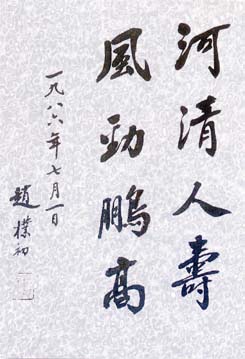 河清人壽
風勁鵬高
一九八六年七月一日
趙樸初